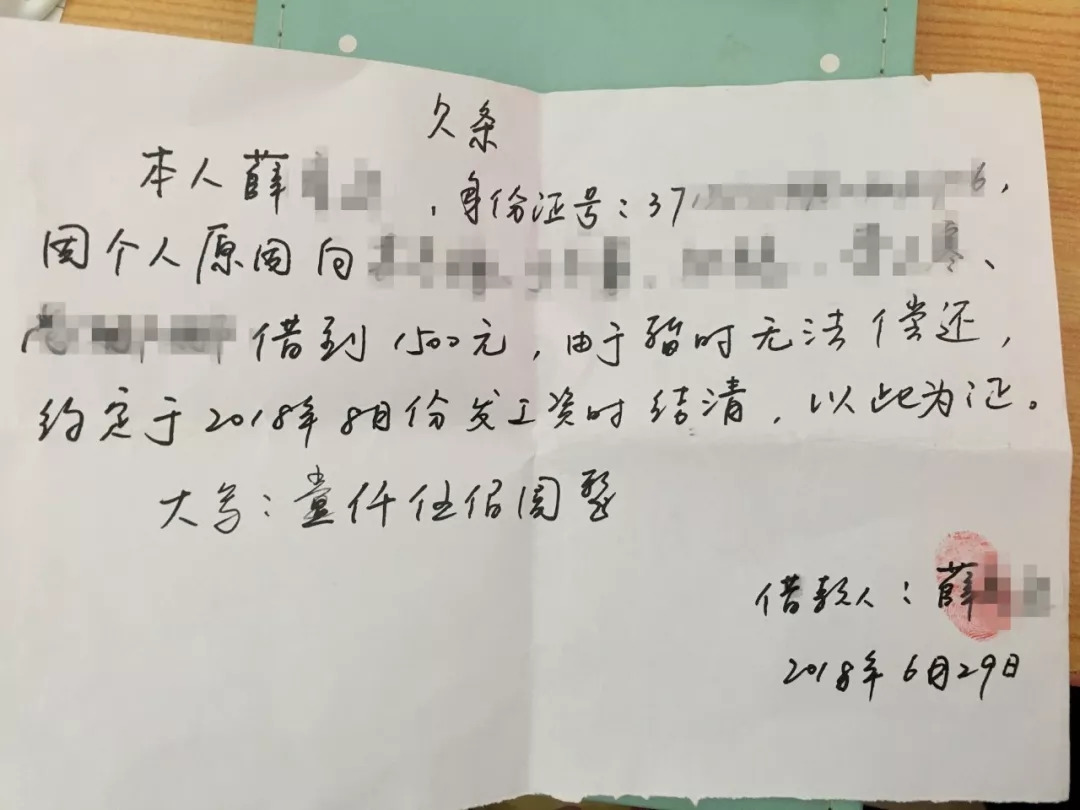 欠条
本人薛 ，身份证号：37 6，
因个人原因向 、 、
借到1500元，由于暂时无法偿还，
约定于2018年8月份发工资时结清，以此为证。
大写：壹仟伍佰圆整
借款人：薛
2018年6月29日